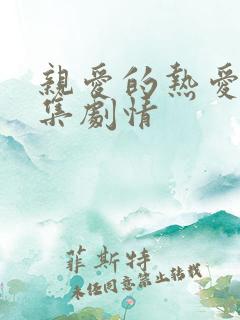 親愛的熱愛
集劇情
菲斯特
未經同意禁止轉載